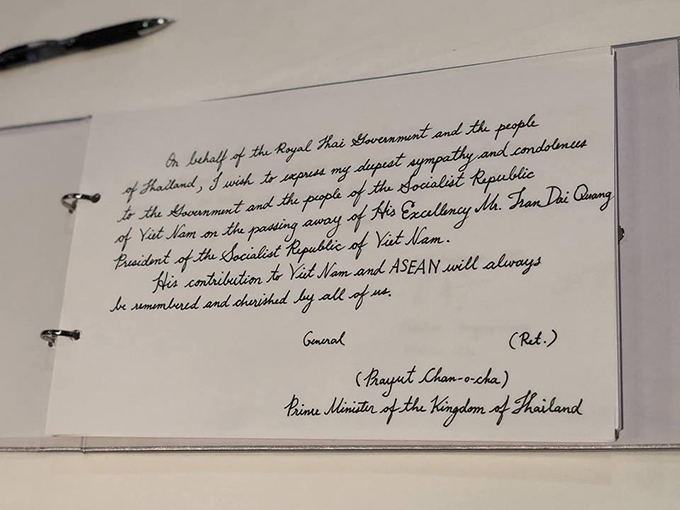 On behalf of the Royal Thai Government and the people
of Thailand, I wish to express my deepest sympathy and condolences
to the Government and the people of the Socialist Republic
of Viet Nam on the passing away of His Excellency Mr. Tran Dai Quang
President of the Socialist Republic of Viet Nam.
His contribution to Viet Nam and ASEAN will always
be remembered and cherished by all of us.
General (Ret.)
(Prayut Chan-o-cha)
Prime Minister of the Kingdom of Thailand